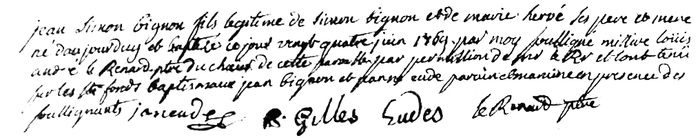 jean simon bignon fils legitime de simon bignon et de marie hervé ses pere et mere
né daujourduy et baptisé ce jour vingt quatre juin 1769 par moy soussigné missire louis
andré le Renard ptre du chœur de cette paroisse par permission de mr le Rr et lont tenü
sur les sts fonds baptismaux jean bignon et jeanne eude parain et maraine en presence des
soussignants jan eude R. Gilles Eudes le Renard ptre